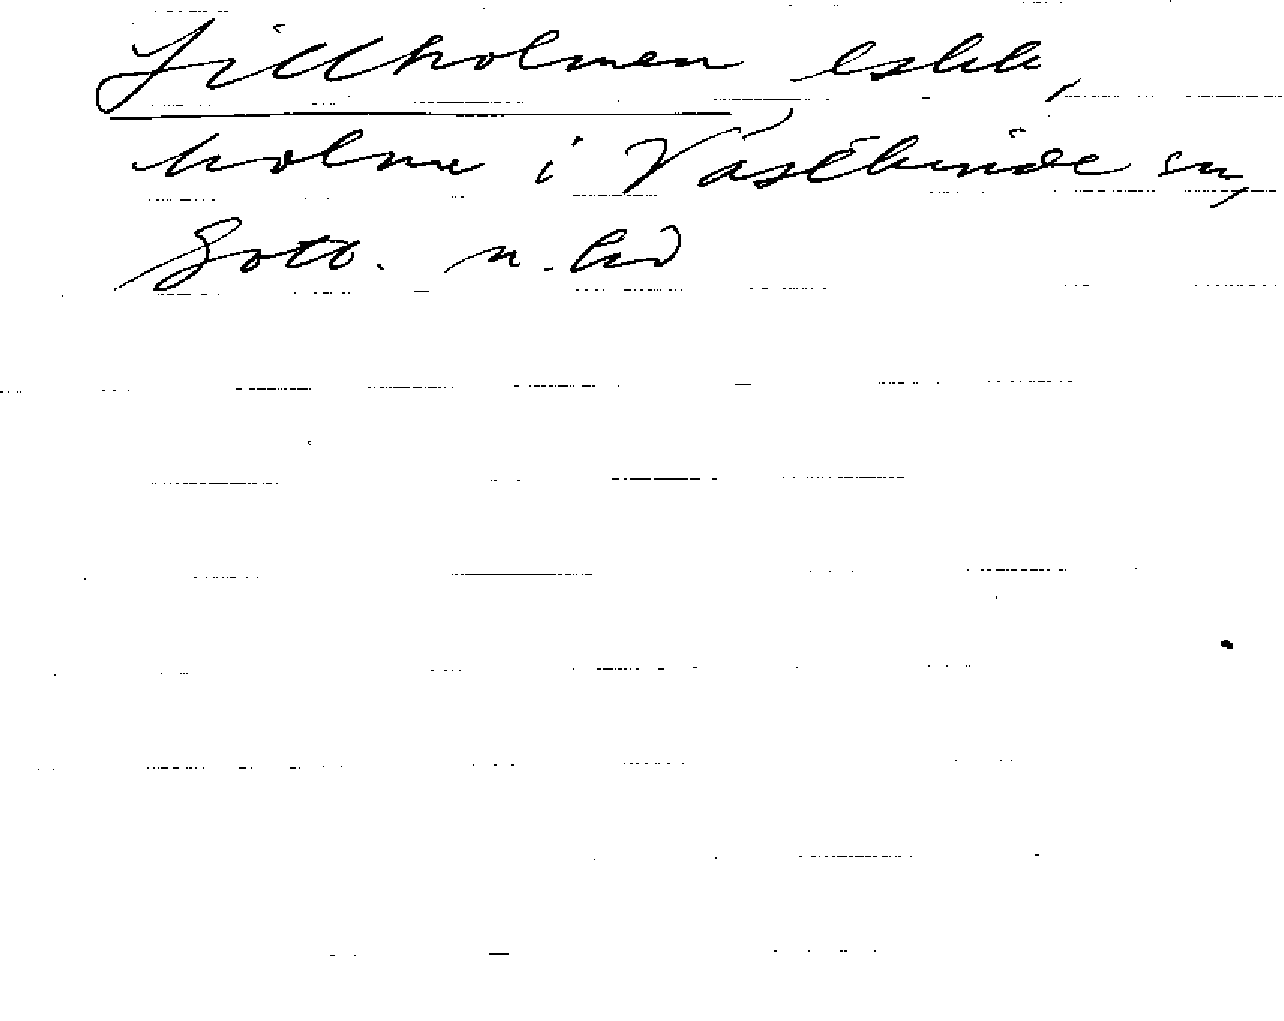 Lillholmen eskk,
holme i Västkinde sn,
Gotl. n. hd